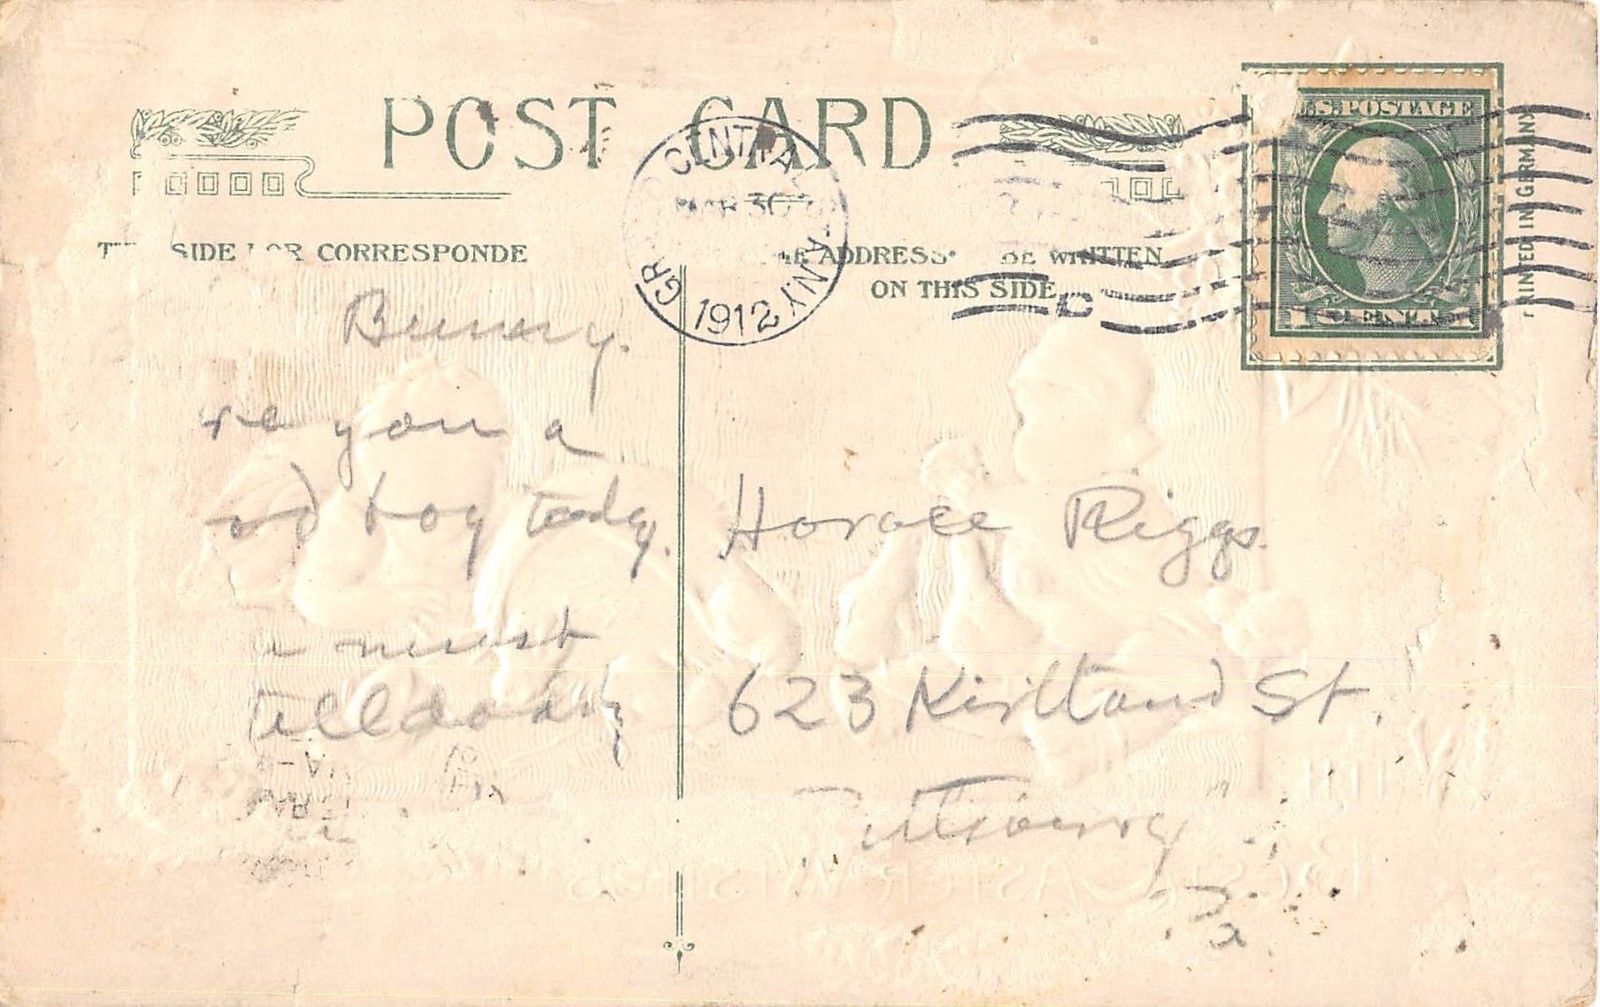 POST CARD
SIDE FOR CORRESPONDE
ADDRESS BE WRITTEN
ON THIS SIDE
CENTRAL
MAR 30
1912
N.Y.
C
U.S. POSTAGE
1 CENT 1
PRINTED IN GERMANY
Bunny.
re you a
od boy today.
u must
tell daddy
Horace Riggs.
623 Kirtland St.
Pittsburg
Pa
WITH
BEST EASTER WISHES